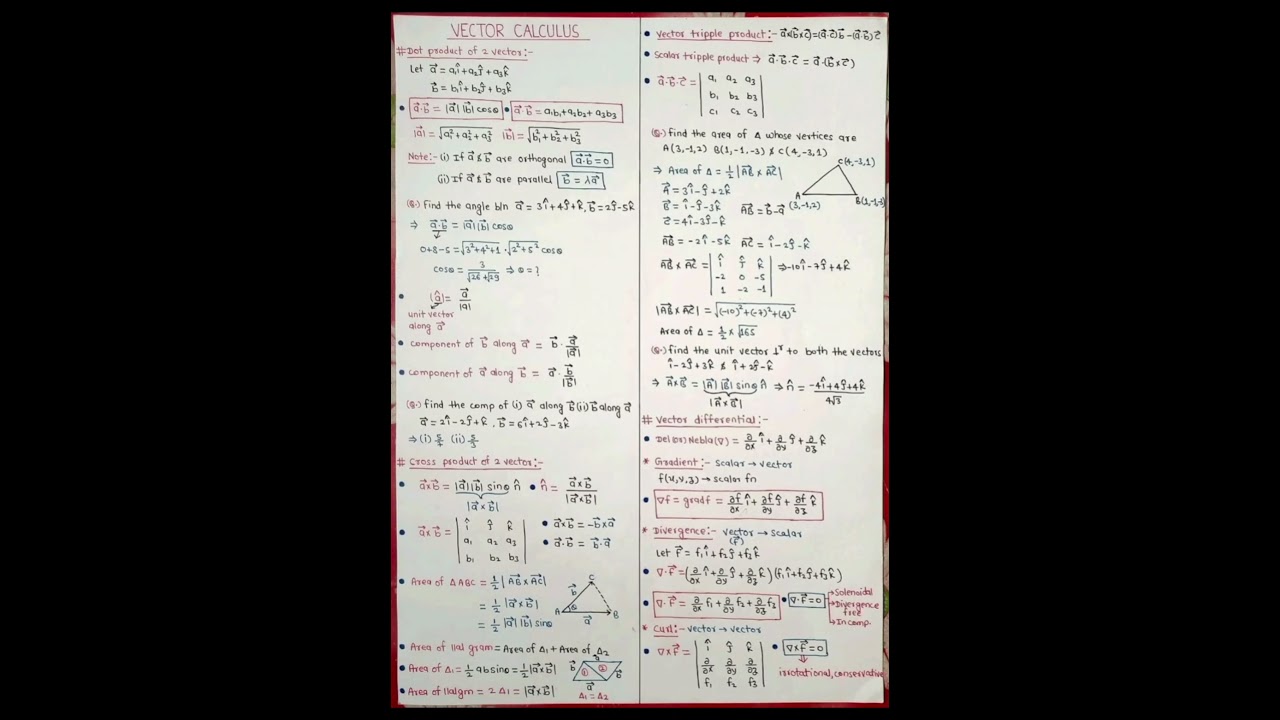 VECTOR CALCULUS
# Dot product of 2 vector:-
Let a⃗ = a₁î+a₂ĵ+a₃k̂
b⃗ = b₁î+b₂ĵ+b₃k̂
• a⃗·b⃗ = |a⃗| |b⃗| cosθ • a⃗·b⃗ = a₁b₁+a₂b₂+a₃b₃
|a| = √a₁²+a₂²+a₃² |b| = √b₁²+b₂²+b₃²
Note:- (i) If a⃗ & b⃗ are orthogonal a⃗·b⃗ = 0
(ii) If a⃗ & b⃗ are parallel b⃗ = λa⃗
(Q.) Find the angle b/n a⃗ = 3î+4ĵ+k̂, b⃗ = 2ĵ-5k̂
⇒ a⃗·b⃗ = |a⃗| |b⃗| cosθ
0+8-5 = √3²+4²+1 · √2²+5² cosθ
cosθ = 3/√26 √29 ⇒ θ = ?
• (â) = a⃗/|a|
unit vector
along a⃗
• component of b⃗ along a⃗ = b⃗ · a⃗/|a⃗|
• component of a⃗ along b⃗ = a⃗ · b⃗/|b⃗|
(Q.) find the comp of (i) a⃗ along b⃗ (ii) b⃗ along a⃗
a⃗ = 2î-2ĵ+k̂, b⃗ = 6î+2ĵ-3k̂
⇒ (i) 5/7 (ii) 5/3
# Cross product of 2 vector:-
• a⃗×b⃗ = |a⃗||b⃗| sinθ n̂ • n̂ = a⃗×b⃗/|a⃗×b⃗|
|a⃗×b⃗|
• a⃗×b⃗ = | î ĵ k̂ | • a⃗×b⃗ = -b⃗×a⃗
a₁ a₂ a₃ • a⃗·b⃗ = b⃗·a⃗
b₁ b₂ b₃
• Area of ΔABC = 1/2 |AB⃗ × AC⃗|
= 1/2 |a⃗×b⃗|
= 1/2 |a⃗| |b⃗| sinθ
C
b⃗
A θ B
a⃗
• Area of llal gram = Area of Δ₁ + Area of Δ₂
• Area of Δ₁ = 1/2 ab sinθ = 1/2 |a⃗×b⃗|
• Area of llalgm = 2 Δ₁ = |a⃗×b⃗|
a
b⃗ ① ② b⃗
a⃗
Δ₁ = Δ₂
• Vector tripple product:- a⃗×(b⃗×c⃗) = (a⃗·c⃗)b⃗ - (a⃗·b⃗)c⃗
• Scalar tripple product ⇒ a⃗·b⃗·c⃗ = a⃗·(b⃗×c⃗)
• a⃗·b⃗·c⃗ = | a₁ a₂ a₃ |
b₁ b₂ b₃
c₁ c₂ c₃
(Q.) find the area of Δ whose vertices are
A(3,-1,2) B(1,-1,-3) & C(4,-3,1)
⇒ Area of Δ = 1/2 |AB⃗ × AC⃗|
A⃗ = 3î-ĵ+2k̂
B⃗ = î-ĵ-3k̂ AB⃗ = b⃗-a⃗
c⃗ = 4î-3ĵ-k̂
C(4,-3,1)
A
(3,-1,2)
B(1,-1,-3)
AB⃗ = -2î-5k̂ AC⃗ = î-2ĵ-k̂
AB⃗ × AC⃗ = | î ĵ k̂ | ⇒ -10î-7ĵ+4k̂
-2 0 -5
1 -2 -1
|AB⃗ × AC⃗| = √(-10)²+(-7)²+(4)²
Area of Δ = 1/2 × √165
(Q.) find the unit vector ⊥ʳ to both the vectors
î-2ĵ+3k̂ & î+2ĵ-k̂
⇒ A⃗×B⃗ = |A⃗| |B⃗| sinθ n̂ ⇒ n̂ = -4î+4ĵ+4k̂/4√3
|A⃗×B⃗|
# Vector differential:-
• Del (or) Nebla(∇) = ∂/∂x î + ∂/∂y ĵ + ∂/∂z k̂
* Gradient:- scalar → vector
f(x,y,z) → scalar fn
• ∇f = gradf = ∂f/∂x î + ∂f/∂y ĵ + ∂f/∂z k̂
* Divergence:- vector → scalar
(f⃗)
Let F⃗ = f₁î+f₂ĵ+f₃k̂
• ∇·F⃗ = (∂/∂x î + ∂/∂y ĵ + ∂/∂z k̂)(f₁î+f₂ĵ+f₃k̂)
• ∇·F⃗ = ∂/∂x f₁ + ∂/∂y f₂ + ∂/∂z f₃ • ∇·F⃗ = 0
→ Solenoidal
→ Divergence
free
→ Incomp.
* Curl:- vector → vector
• ∇×F⃗ = | î ĵ k̂ | • ∇×F⃗ = 0
∂/∂x ∂/∂y ∂/∂z
f₁ f₂ f₃
irrotational, conservative